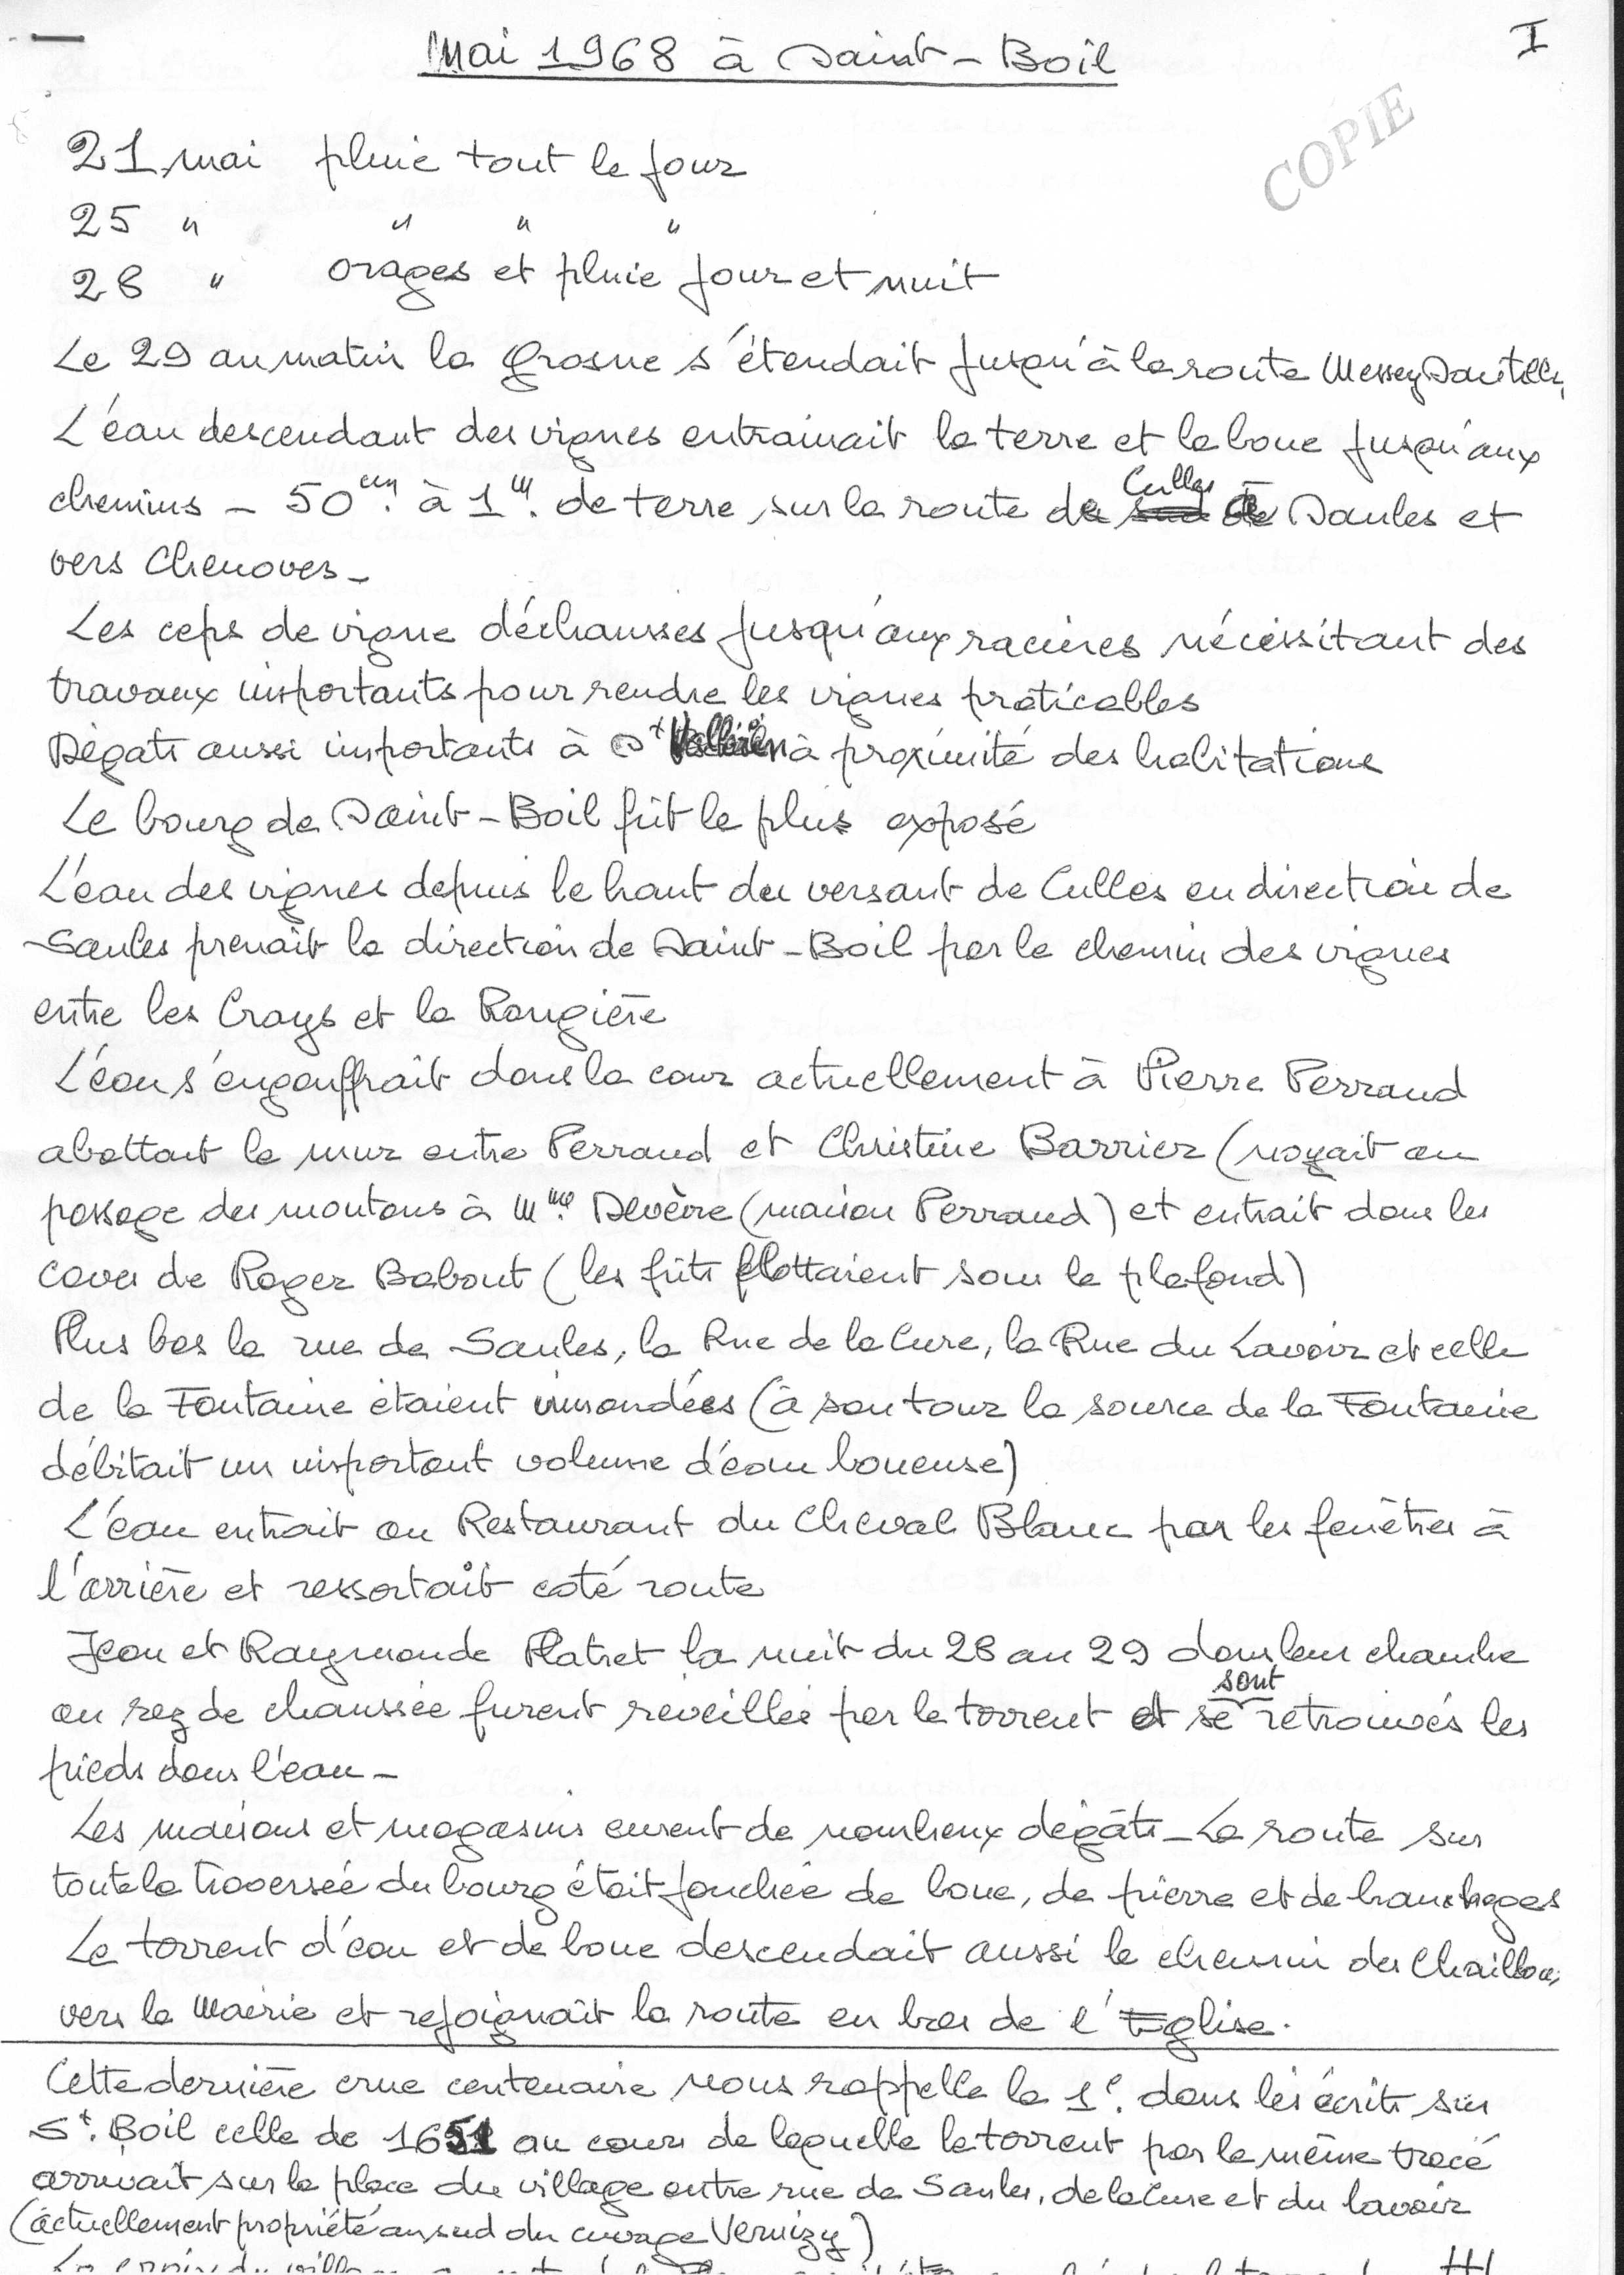 Mai 1968 à Saint-Boil
I
COPIE
21 mai pluie tout le jour
25 " " " "
28 " orages et pluie jour et nuit
Le 29 au matin la Grosne s'étendait jusqu'à la route Messey Santilly,
L'eau descendant des vignes entrainait la terre et la boue jusqu'aux
chemins - 50cm. à 1m. de terre sur la route de Culles à Saules et
vers Chenoves -
Les ceps de vigne déchaussés jusqu'aux racines nécéssitant des
travaux importants pour rendre les vignes praticables
Dégats aussi importants à St Vallerin à proximité des habitations
Le bourg de Saint-Boil fût le plus exposé
L'eau des vignes depuis le haut du versant de Culles en direction de
Saules prenait la direction de Saint-Boil par le chemin des vignes
entre les Crays et la Rougière
L'eau s'engouffrait dans la cour actuellement à Pierre Perraud
abattant le mur entre Perraud et Christine Barrier (noyait au
passage des moutons à Mme. Devèvre (maison Perraud) et entrait dans les
caves de Roger Babout (les fûts flottaient sous le plafond)
Plus bas la rue de Saules, la Rue de la Cure, la Rue du Lavoir et celle
de la Fontaine étaient innondées (à son tour la source de la Fontaine
débitait un important volume d'eau boueuse)
L'eau entrait au Restaurant du Cheval Blanc par les fenêtres à
l'arrière et ressortait coté route
Jean et Raymonde Platret la nuit du 28 au 29 dans leur chambre
au rez de chaussée furent réveillés par le torrent et se sont retrouvés les
pieds dans l'eau -
Les maisons et magasins eurent de nombreux dégâts - La route sur
toute la traversée du bourg était jonchée de boue, de pierre et de branchages
Le torrent d'eau et de boue descendait aussi le chemin des Chailloux
vers la Mairie et rejoignait la route en bas de l'Eglise.
Cette dernière crue centenaire nous rappelle la 1e. dans les écrits sur
St. Boil celle de 1651 au cours de laquelle le torrent par le même tracé
arrivait sur la place du village entre rue de Saules, de la Cure et du lavoir
(actuellement propriété au sud du cuvage Vernizy)
La croix du village